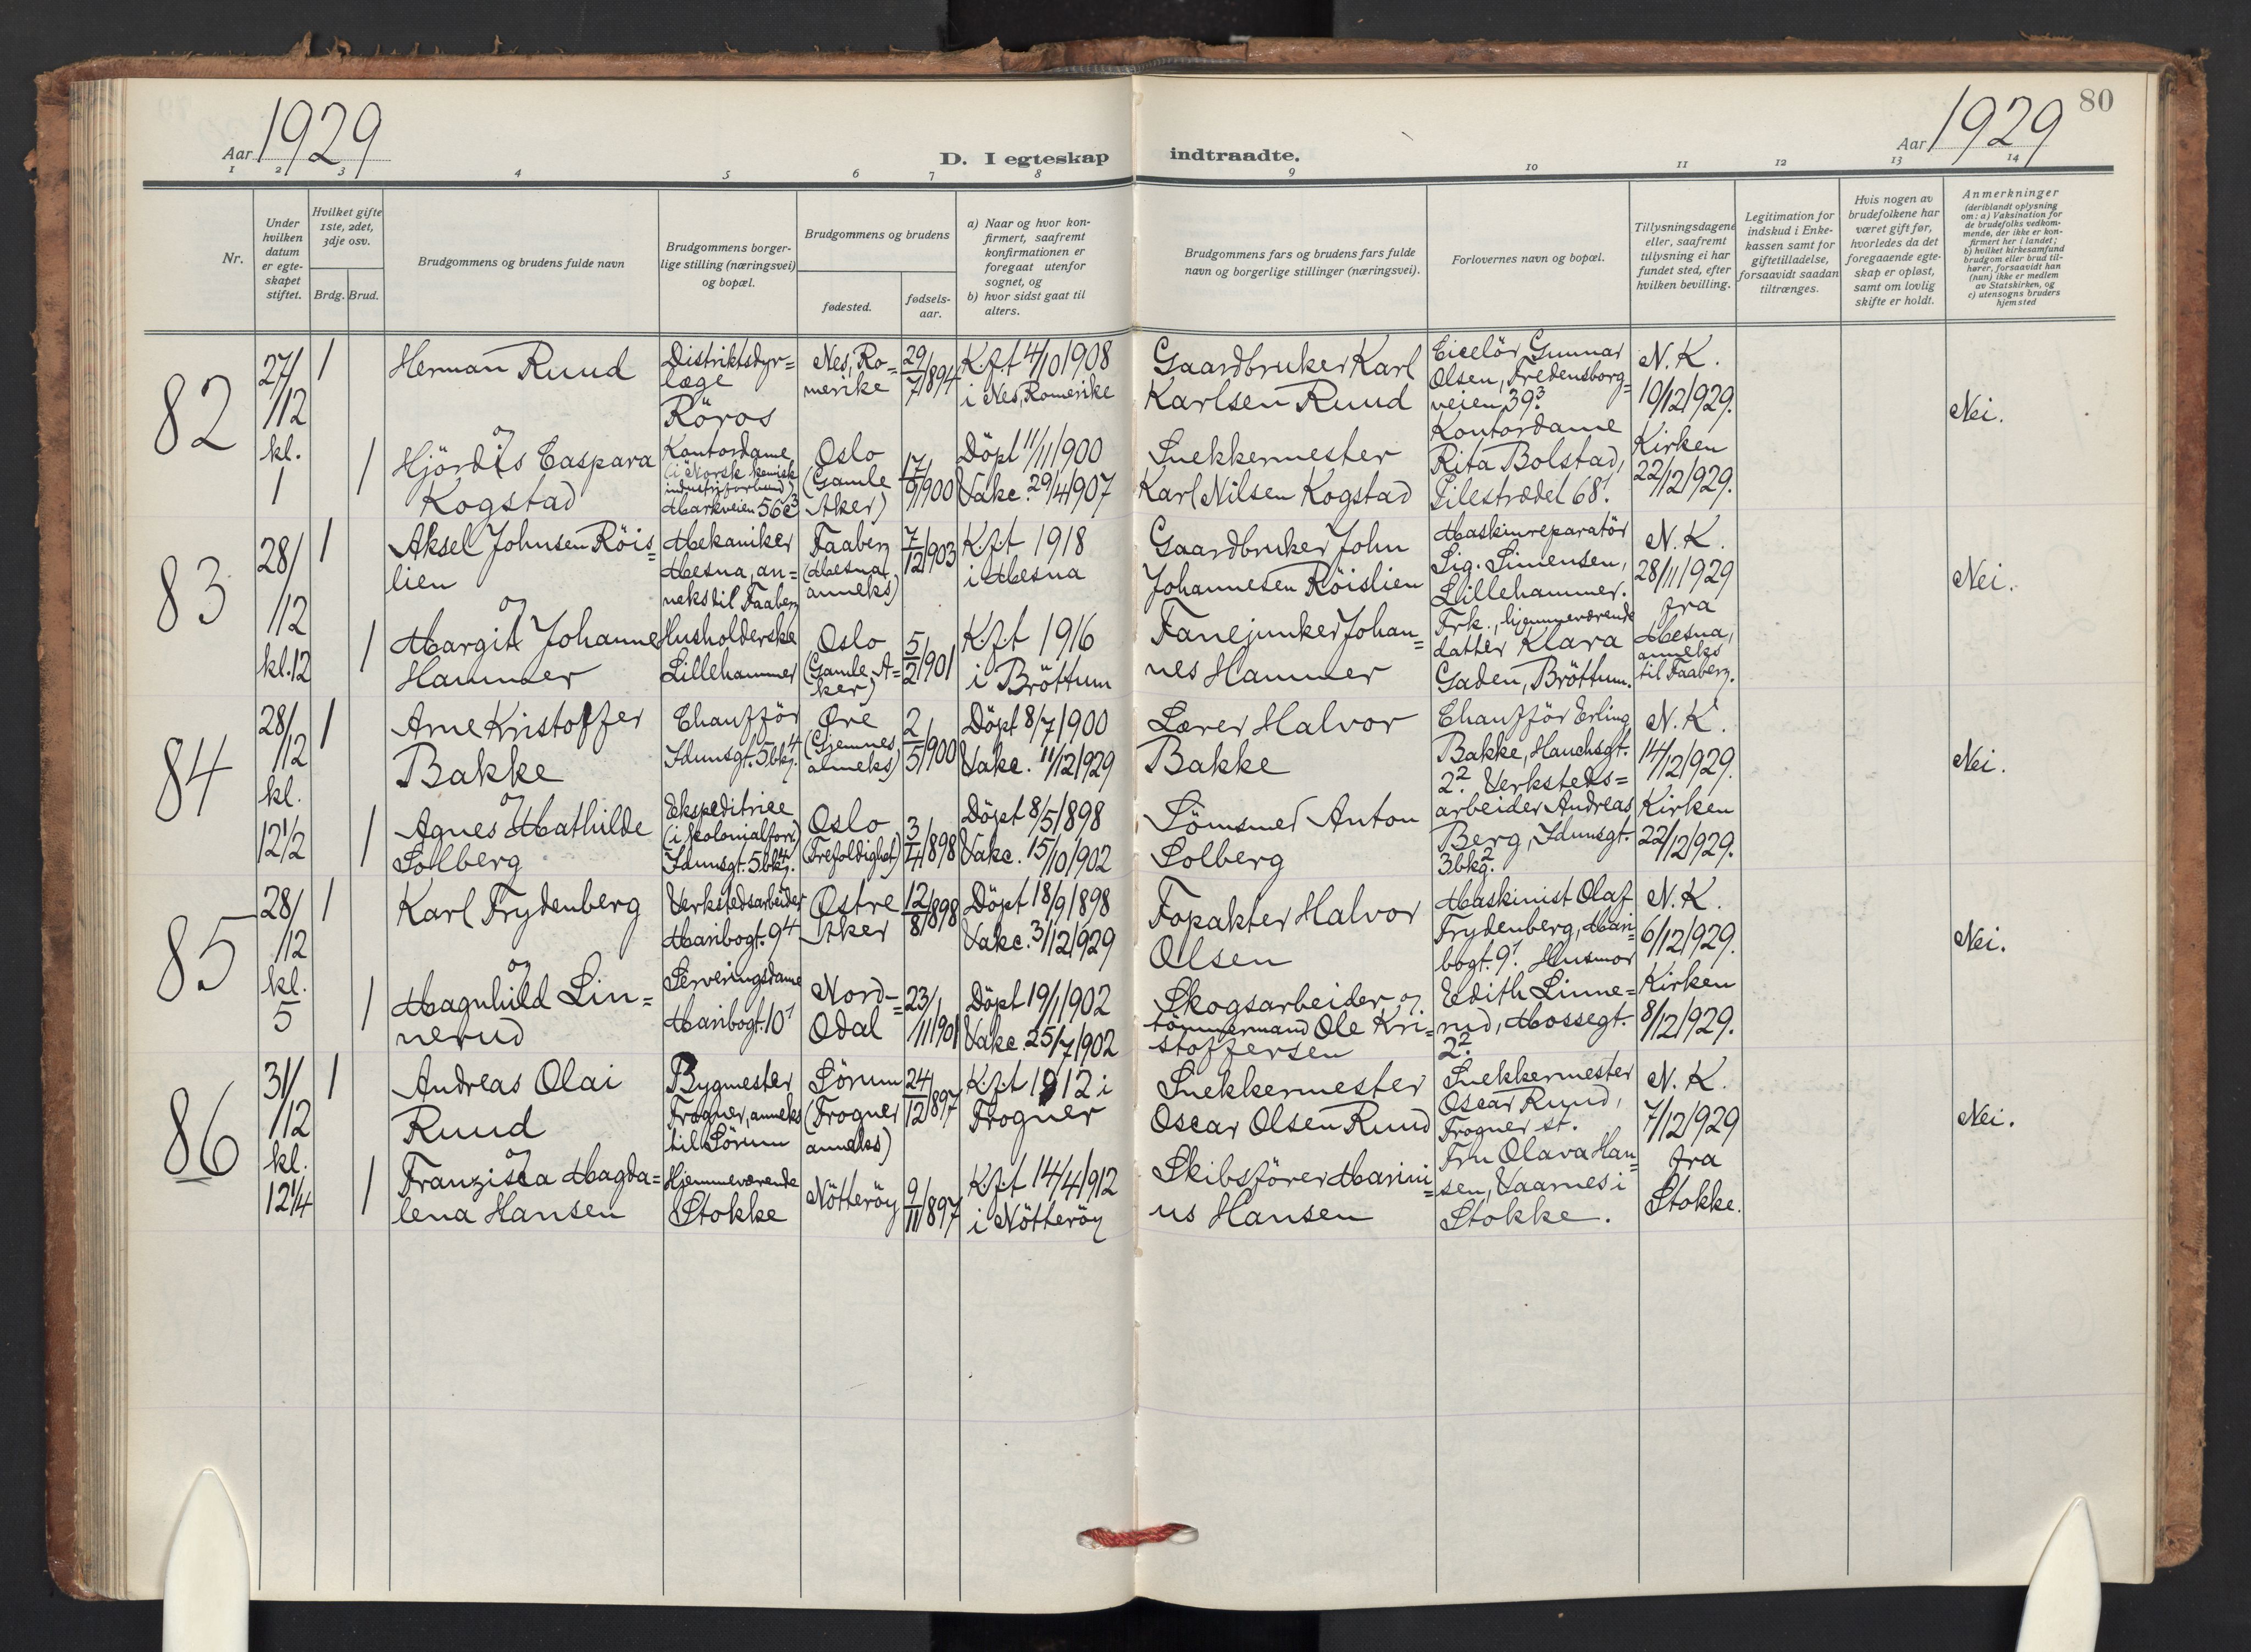 80
Aar 1929
Aar 1929
D. I egteskap indtraadte.
1 2 3 4 5 6 7 8 9 10 11 12 13 14
Nr.
Under
hvilken
datum
er egte-
skapet
stiftet.
Hvilket gifte
1ste, 2det,
3dje osv.
Brdg. Brud.
Brudgommens og brudens fulde navn
Brudgommens borger-
lige stilling (næringsvei)
og bopæl.
Brudgommens og brudens
fødested.
fødsels-
aar.
a) Naar og hvor kon-
firmert, saafremt
konfirmationen er
foregaat utenfor
sognet, og
b) hvor sidst gaat til
alters.
Brudgommens fars og brudens fars fulde
navn og borgerlige stillinger (næringsvei).
Forlovernes navn og bopæl.
Tillysningsdagene
eller, saafremt
tillysning ei har
fundet sted, efter
hvilken bevilling.
Legitimation for
indskud i Enke-
kassen samt for
giftetilladelse,
forsaavidt saadan
tiltrænges.
Hvis nogen av
brudefolkene har
været gift før,
hvorledes da det
foregaaende egte-
skap er opløst,
samt om lovlig
skifte er holdt.
Anmerkninger
(deriblandt oplysning
om: a) Vaksination for
de brudefolks vedkom-
mende, der ikke er kon-
firmert her i landet;
b) hvilket kirkesamfund
brudgom eller brud til-
hører, forsaavidt han
(hun) ikke er medlem
av Statskirken, og
c) utensogns bruders
hjemsted
82
27/
/12
kl.
1
1
1
Herman Ruud
og
Hjördis Caspara
Kogstad
Distriktsdyr=
læge
Röros
Kontordame
(i Norsk kemisk
industriforbund)
Markveien 56c3
Nes, Ro=
merike
Oslo
(Gamle
Aker)
29/7 1894
17/9 1900
K.f.t 4/10 1908
i Nes, Romerike
Döpt 11/11 1900
Vakc. 29/4 1907
Gaardbruker Karl
Karlsen Ruud
Snekkermester
Karl Nilsen Kogstad
Ciselör Gunnar
Olsen, Fredensborg=
veien 39.3
Kontordame
Rita Bolstad,
Pilestrædet 68.1
N. K.
19/12 1929.
Kirken
22/12 1929.
Nei.
83
28/
/12
kl. 12
1
1
Aksel Johnsen Röis=
lien
og
Margit Johanne
Hammer
Mekaniker
Mesna, an=
neks til Faaberg
Husholderske
Lillehammer
Faaberg
(Mesna
anneks)
Oslo
(Gamle A=
ker)
7/12 1903
5/2 1901
K.f.t 1918
i Mesna
K.f.t 1916
i Bröttum
Gaardbruker John
Johannesen Röislien
Fanejunker Johan=
nes Hammer
Maskinreparatör
Sig. Simensen,
Lillehammer.
Frk., hjemmeværende
datter Klara
Gaden, Bröttum.
N. K.
28/11 1929
fra
Mesna,
anneks
til Faaberg.
Nei.
84
28/
/12
kl.
12 1/2
1
1
Arne Kristoffer
Bakke
og
Agnes Mathilde
Solberg
Chaufför
Idunsgt. 5 bkg.4
Ekspeditrice
(i kolonialforr.)
Idunsgt. 5 bkg.4
Øre
(Gjemnes
anneks)
Oslo
(Trefoldighet)
2/5 1900
3/4 1898
Döpt 8/7 1900
Vakc. 11/12 1929
Döpt 8/5 1898
Vakc. 15/10 1902
Lærer Halvor
Bakke
Lömsmed Anton
Solberg
Chaufför Erling
Bakke, Hauchsgt.
2.2 Verksteds=
arbeider Andreas
Berg, Idunsgt.
3 bkg.2
N. K.
14/12 1929.
Kirken
22/12 1929.
Nei.
85
28/
/12
kl.
5
1
1
Karl Frydenberg
og
Magnhild Lin=
nerud
Verkstedsarbeider
Maribogt. 9.4
Serveringsdame
Maribogt. 10.1
Østre
Aker
Nord=
Odal
12/8 1898
23/11 1901
Döpt 18/9 1898
Vakc. 3/12 1929
Döpt 19/1 1902
Vakc. 25/7 1902
Fopakter Halvor
Olsen
Skogsarbeider og
tömmermand Ole Kri=
stoffersen
Maskinist Olaf
Frydenberg, Mari=
bogt. 9.1 Husmor
Edith Linne=
rud, Mossegt.
2.2
N. K.
6/12 1929.
Kirken
8/12 1929.
Nei.
86
31/
/12
kl.
12 1/4
1
1
Andreas Olai
Ruud
og
Franzisca Magda=
lena Hansen
Bygmester
Frogner, anneks
til Sörum
Hjemmeværende
Stokke
Sörum
(Frogner
anneks)
Nötteröy
24/12 1897
9/11 1897
K.f.t 1912 i
Frogner
K.f.t 14/4 1912
i Nötteröy
Snekkermester
Oscar Olsen Ruud
Skibsförer Marini=
us Hansen
Snekkermester
Oscar Ruud,
Frogner st.
Fru Olava Han=
sen, Vaarnes i
Stokke.
N. K.
7/12 1929
fra
Stokke.
Nei.